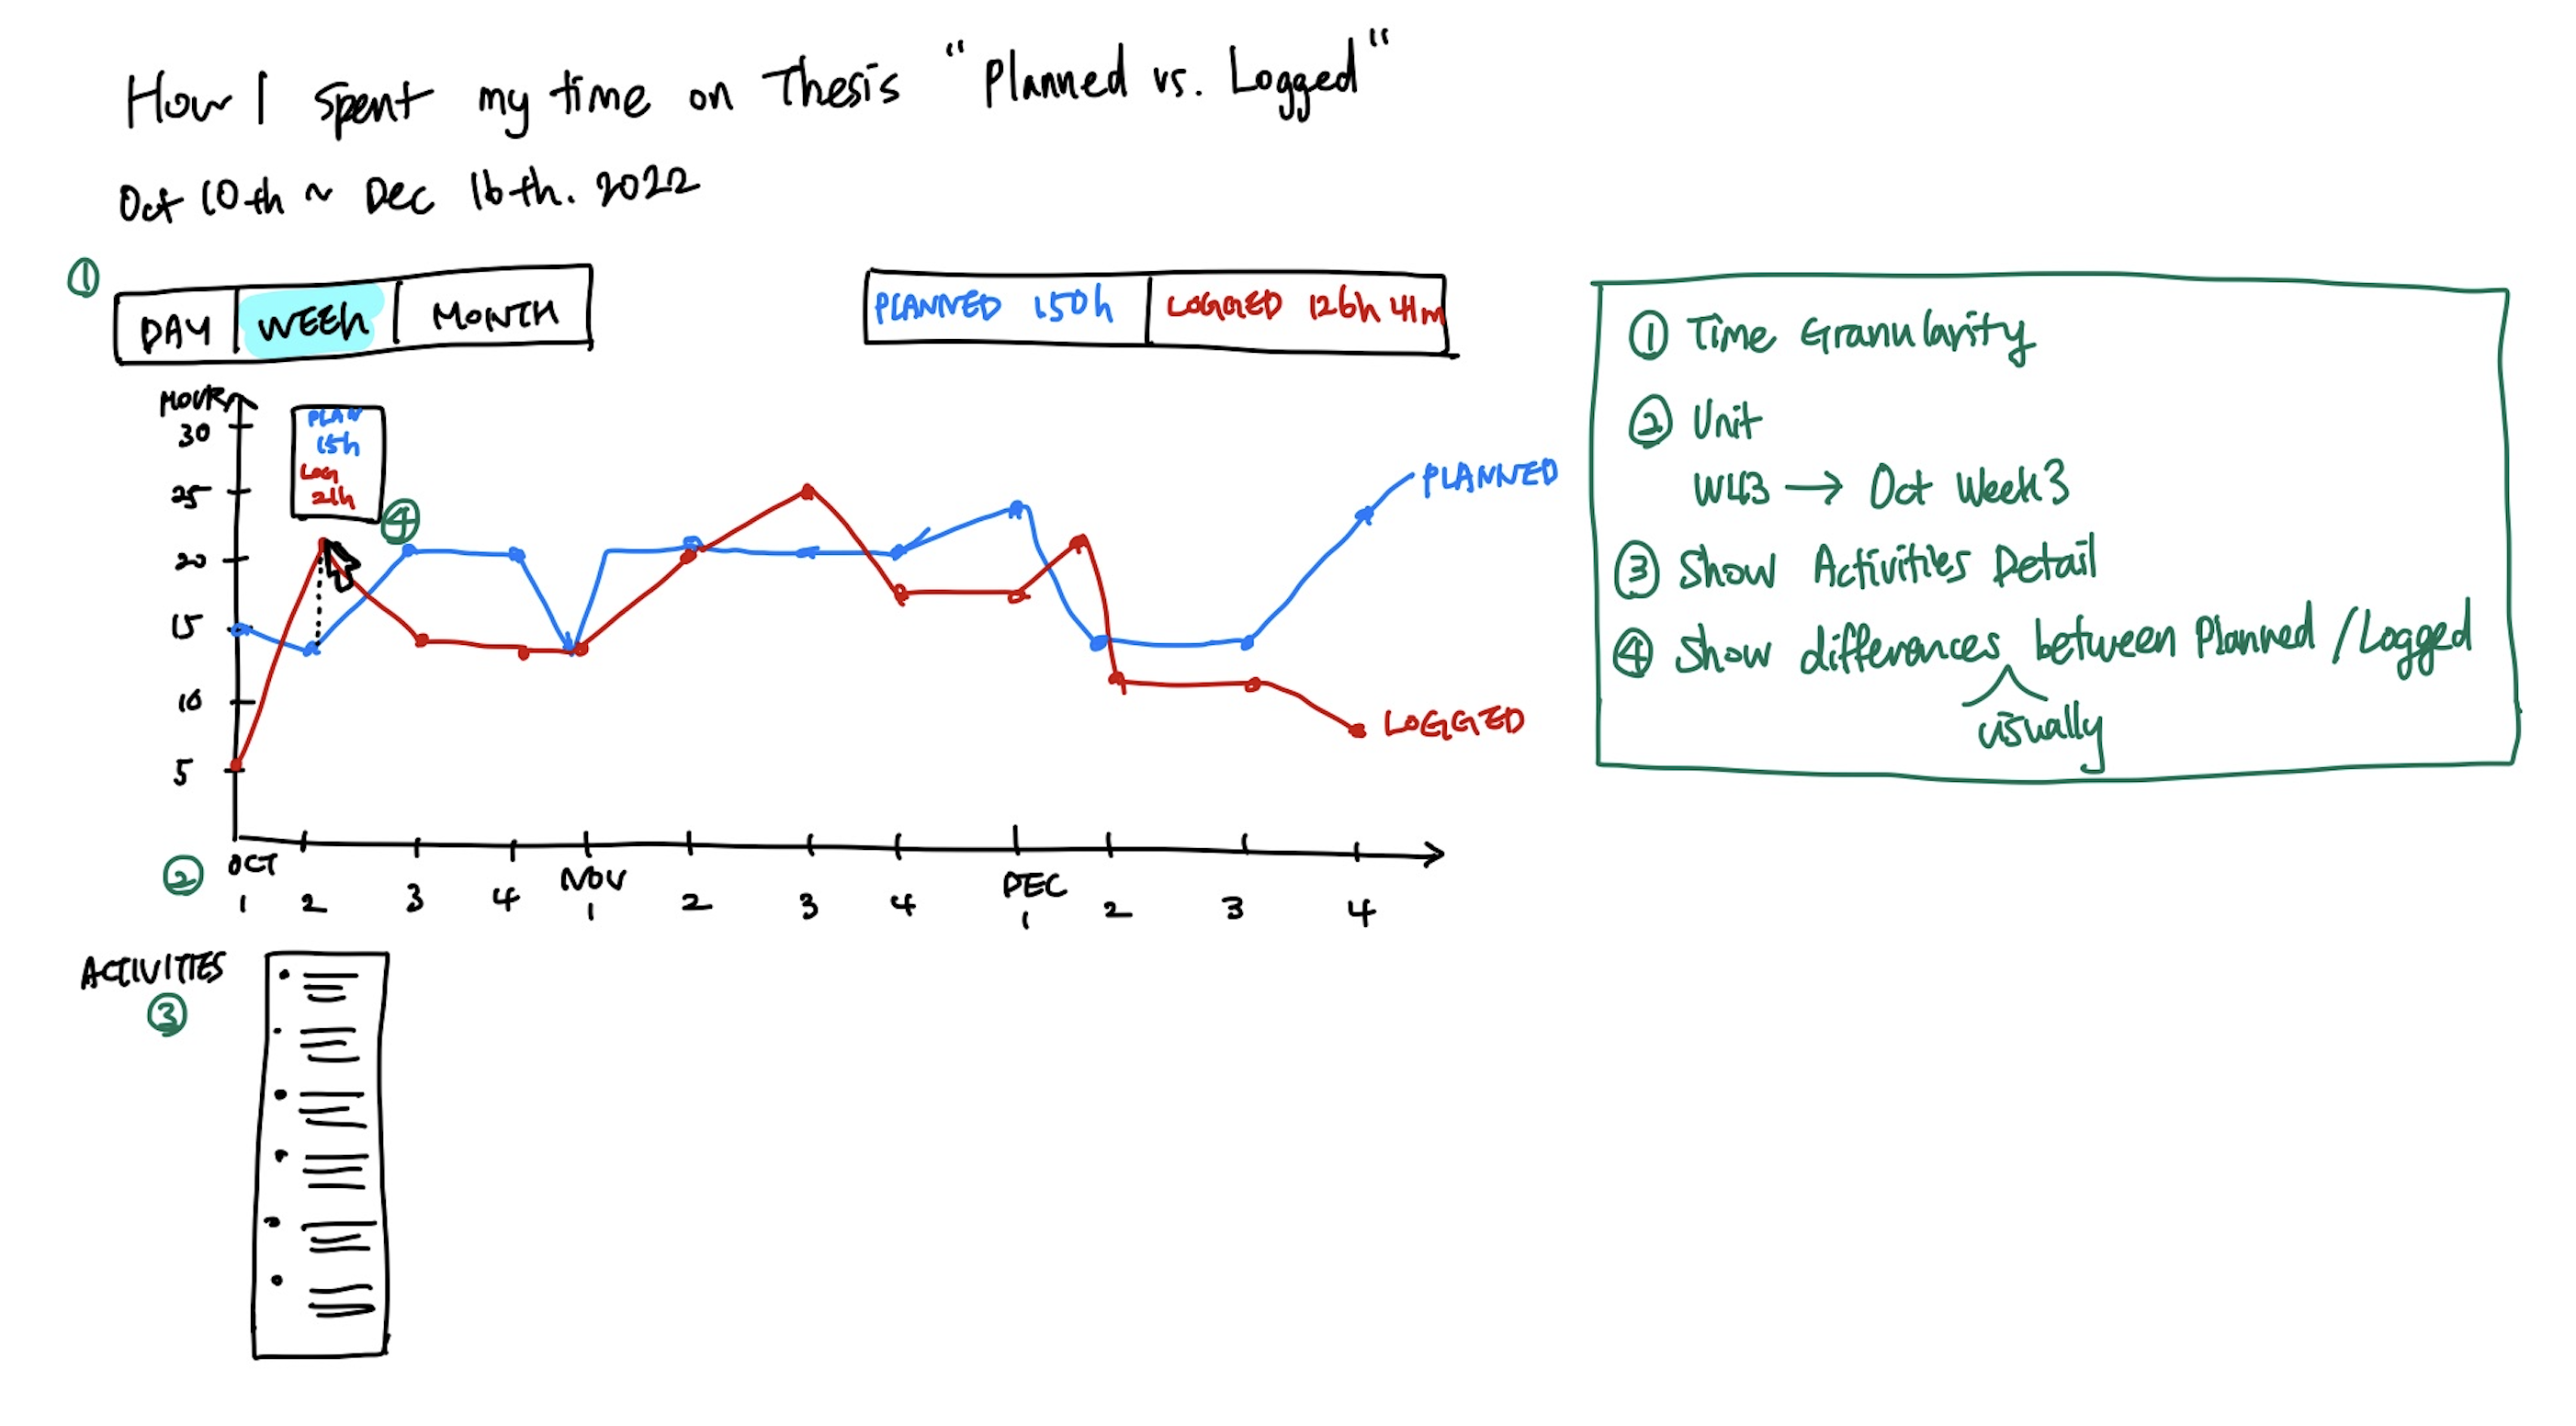 How I spent my time on Thesis "Planned vs. Logged"
Oct 10th ~ Dec 16th. 2022
①
DAY WEEK MONTH
PLANNED 150h LOGGED 126h 41m
HOUR
30
25
20
15
10
5
PLAN
15h
LOG
21h
④
PLANNED
LOGGED
② OCT NOV DEC
1 2 3 4 1 2 3 4 1 2 3 4
ACTIVITIES
③
① Time Granularity
② Unit
W43 → Oct Week3
③ Show Activities Detail
④ Show differences between Planned / Logged
visually